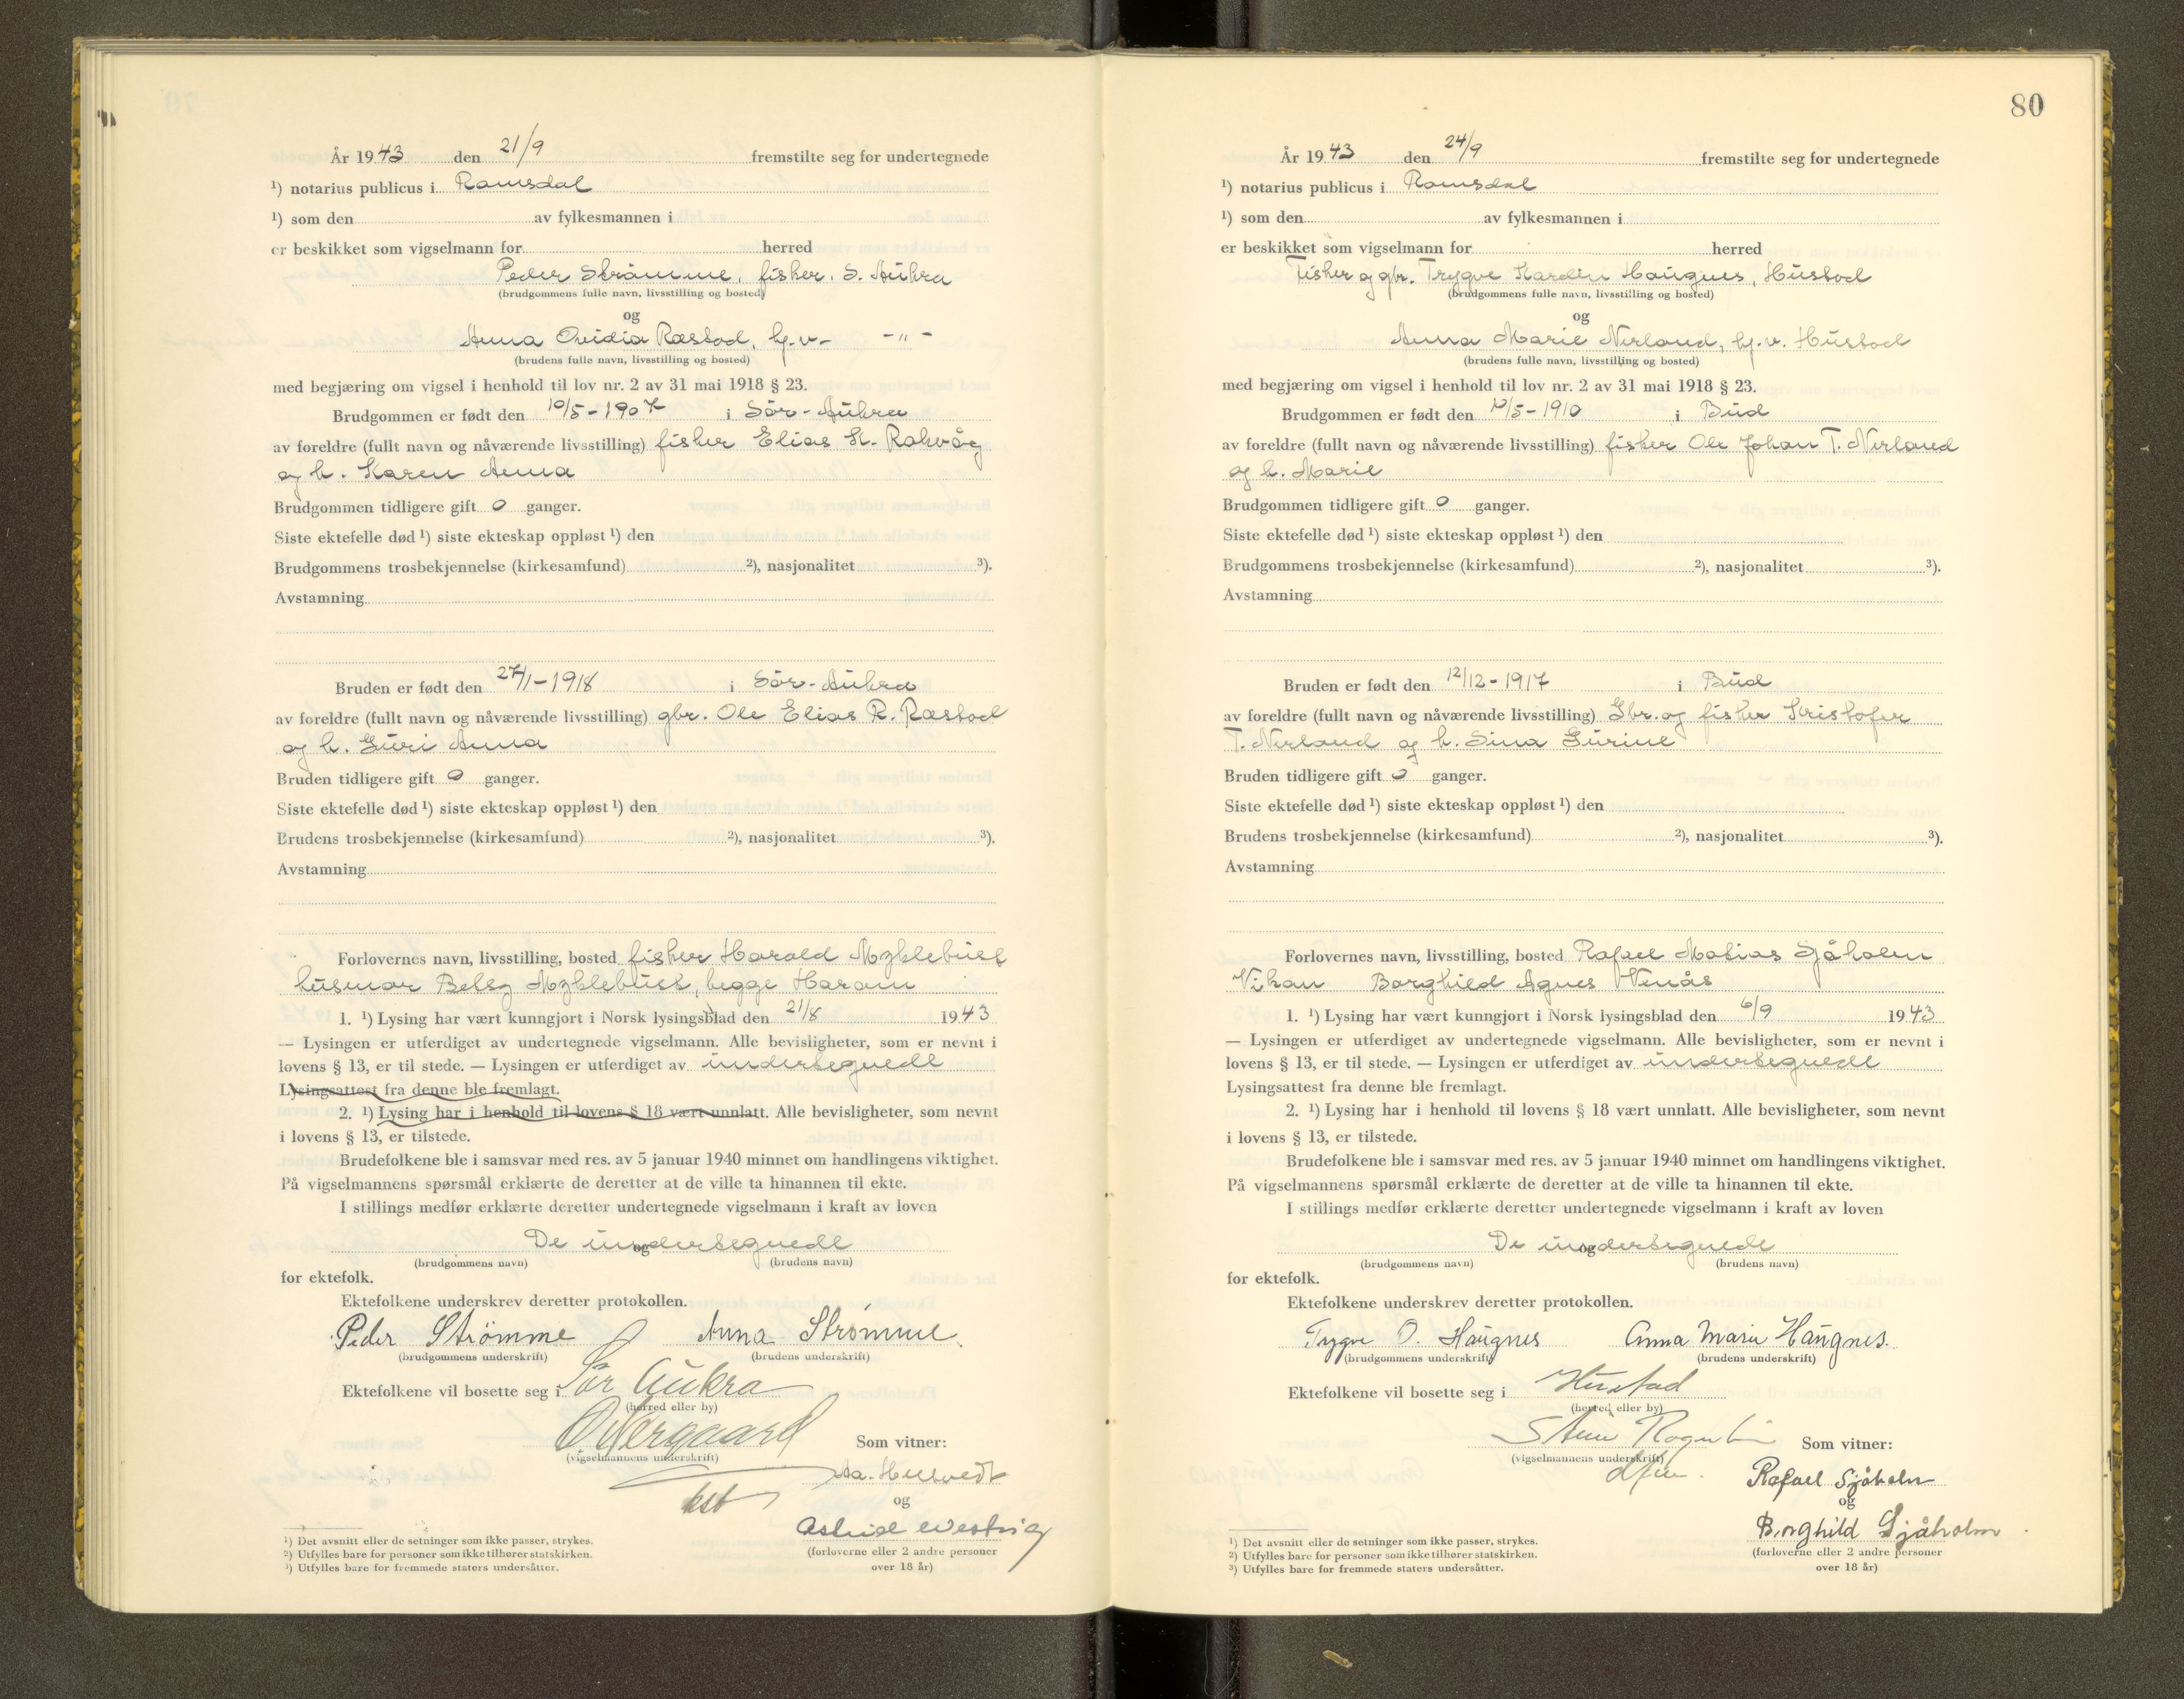 År 1943 den 21/9 fremstilte seg for undertegnede
¹) notarius publicus i Romsdal
¹) som den av fylkesmannen i
er beskikket som vigselmann for herred
Peder Strömme, fisker, S. Aukra
(brudgommens fulle navn, livsstilling og bosted)
og
Anna Ovidia Røstad, hj.v. - " -
(brudens fulle navn, livsstilling og bosted)
med begjæring om vigsel i henhold til lov nr. 2 av 31 mai 1918 § 23.
Brudgommen er født den 10/5-1907 i Sör-Aukra
av foreldre (fullt navn og nåværende livsstilling) fisker Elias K. Rakvåg
og h. Karen Anna
Brudgommen tidligere gift 0 ganger.
Siste ektefelle død ¹) siste ekteskap oppløst ¹) den
Brudgommens trosbekjennelse (kirkesamfund) ²), nasjonalitet ³).
Avstamning
Bruden er født den 27/1-1918 i Sör-Aukra
av foreldre (fullt navn og nåværende livsstilling) gbr. Ole Elias R. Røstad
og h. Guri Anna
Bruden tidligere gift 0 ganger.
Siste ektefelle død ¹) siste ekteskap oppløst ¹) den
Brudens trosbekjennelse (kirkesamfund) ²), nasjonalitet ³).
Avstamning
Forlovernes navn, livsstilling, bosted fisker Harald Myklebust
husmor Betsy Myklebust, begge Haram
1. ¹) Lysing har vært kunngjort i Norsk lysingsblad den 21/8 1943
— Lysingen er utferdiget av undertegnede vigselmann. Alle bevisligheter, som er nevnt i
lovens § 13, er til stede. — Lysingen er utferdiget av undertegnede
Lysingsattest fra denne ble fremlagt.
2. ¹) Lysing har i henhold til lovens § 18 vært unnlatt. Alle bevisligheter, som nevnt
i lovens § 13, er tilstede.
Brudefolkene ble i samsvar med res. av 5 januar 1940 minnet om handlingens viktighet.
På vigselmannens spørsmål erklærte de deretter at de ville ta hinannen til ekte.
I stillings medfør erklærte deretter undertegnede vigselmann i kraft av loven
De undertegnede
og
(brudgommens navn) (brudens navn)
for ektefolk.
Ektefolkene underskrev deretter protokollen.
Peder Strömme Anna Strømme
(brudgommens underskrift) (brudens underskrift)
Ektefolkene vil bosette seg i Sør Aukra
(herred eller by)
Som vitner:
(vigselmannens underskrift)
kst
og
Astrid
(forloverne eller 2 andre personer
over 18 år)
¹) Det avsnitt eller de setninger som ikke passer, strykes.
²) Utfylles bare for personer som ikke tilhører statskirken.
³) Utfylles bare for fremmede staters undersåtter.
80
År 1943 den 24/9 fremstilte seg for undertegnede
¹) notarius publicus i Romsdal
¹) som den av fylkesmannen i
er beskikket som vigselmann for herred
Fisker og gbr. Trygve Kardin Haugnes, Hustad
(brudgommens fulle navn, livsstilling og bosted)
og
Anna Marie Nerland, hj.v. Hustad
(brudens fulle navn, livsstilling og bosted)
med begjæring om vigsel i henhold til lov nr. 2 av 31 mai 1918 § 23.
Brudgommen er født den 10/5-1910 i Bud
av foreldre (fullt navn og nåværende livsstilling) fisker Ole Johan T. Nerland
og h. Marie
Brudgommen tidligere gift 0 ganger.
Siste ektefelle død ¹) siste ekteskap oppløst ¹) den
Brudgommens trosbekjennelse (kirkesamfund) ²), nasjonalitet ³).
Avstamning
Bruden er født den 12/12-1917 i Bud
av foreldre (fullt navn og nåværende livsstilling) Gbr. og fisker Kristofer
T. Nerland og h. Sina Gurine
Bruden tidligere gift 0 ganger.
Siste ektefelle død ¹) siste ekteskap oppløst ¹) den
Brudens trosbekjennelse (kirkesamfund) ²), nasjonalitet ³).
Avstamning
Forlovernes navn, livsstilling, bosted Rafael Mobias Sjåholm
Vikan Borghild Agnes Venås
1. ¹) Lysing har vært kunngjort i Norsk lysingsblad den 6/9 1943
— Lysingen er utferdiget av undertegnede vigselmann. Alle bevisligheter, som er nevnt i
lovens § 13, er til stede. — Lysingen er utferdiget av undertegnede
Lysingsattest fra denne ble fremlagt.
2. ¹) Lysing har i henhold til lovens § 18 vært unnlatt. Alle bevisligheter, som nevnt
i lovens § 13, er tilstede.
Brudefolkene ble i samsvar med res. av 5 januar 1940 minnet om handlingens viktighet.
På vigselmannens spørsmål erklærte de deretter at de ville ta hinannen til ekte.
I stillings medfør erklærte deretter undertegnede vigselmann i kraft av loven
De undertegnede
og
(brudgommens navn) (brudens navn)
for ektefolk.
Ektefolkene underskrev deretter protokollen.
Trygve O. Haugnes Anna Marie Haugnes.
(brudgommens underskrift) (brudens underskrift)
Ektefolkene vil bosette seg i Hustad
(herred eller by)
Som vitner:
(vigselmannens underskrift)
Rafael Sjåholm
og
Borghild Sjåholm
(forloverne eller 2 andre personer
over 18 år)
¹) Det avsnitt eller de setninger som ikke passer, strykes.
²) Utfylles bare for personer som ikke tilhører statskirken.
³) Utfylles bare for fremmede staters undersåtter.